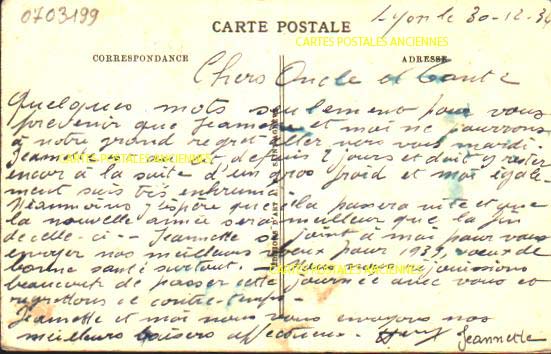 0703199
CARTE POSTALE
Lyon le 30-12-38
CARTES POSTALES ANCIENNES
CORRESPONDANCE
ADRESSE
Chers Oncle et Tante
Quelques mots seulement pour vous
prévenir que Jeannette et moi ne pourrons
à notre grand regret aller vers vous mardi.
Jeannette depuis 2 jours et doit y rester
CARTES POSTALES ANCIENNES
encor à la suite d'un gros froid et moi égale-
ment suis très enrhumé
Néanmoins j'espère que cela passera vite et que
la nouvelle année sera meilleur que la fin
de celle-ci - Jeannette se joint à moi pour vous
envoyer nos meilleurs vœux pour 1939, vœux de
bonne santé surtout. - Nous nous réjouissions
CARTES POSTALES ANCIENNES
beaucoup de passer cette journée avec vous et
regrettons ce contre-temps -
Jeannette et moi nous vous envoyons nos
meilleurs baisers affectueux. Jeannette